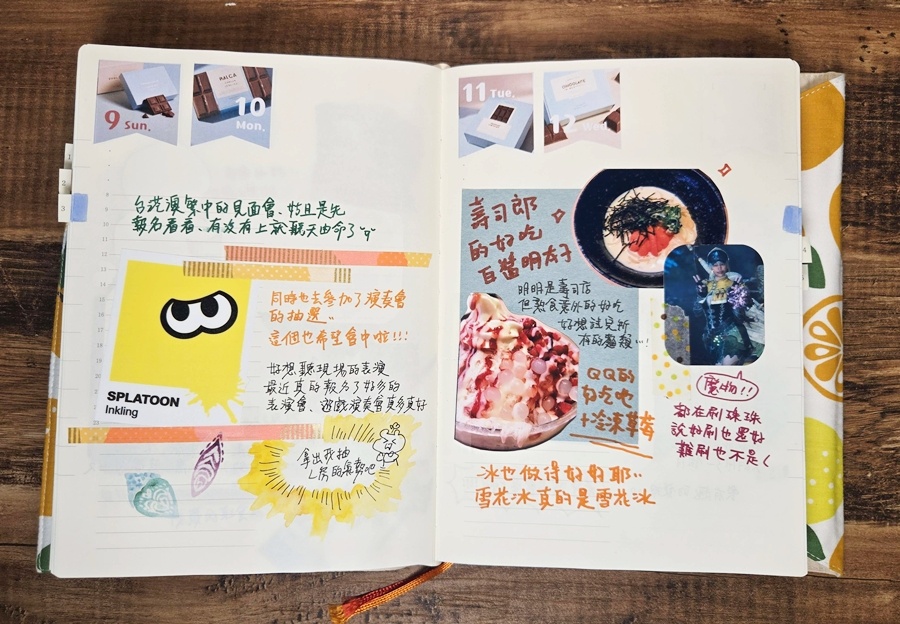 9 Sun.
10
Mon.
台港澳集中的見面會、姑且是先
報名看看、有沒有上就聽天由命了
同時也去參加了演奏會
的抽選..
這個也希望會中啦!!!
SPLATOON
Inkling
好想聽現場的表演
最近真的報名了好多的
表演會、遊戲演奏會真多真好
拿出我抽
房的氣勢吧
11 Tue.
12 Wed.
壽司郎
的好吃
白醬明太子
明明是壽司店
但熟食意外的好吃
好想試完所
有的麵類...!
QQ的
好吃吧
+冷凍草莓
冰也做得好好耶..
雪花冰真的是雪花冰
魔物!!
都在刷珠珠
說好刷也還好
難刷也不是(